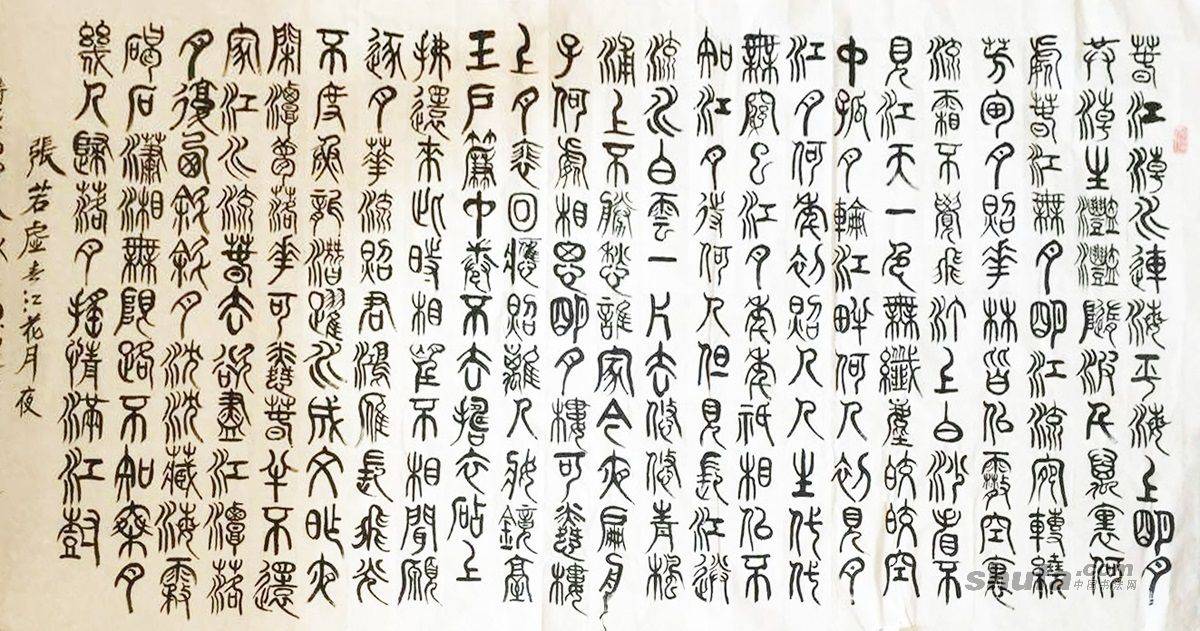 春江潮水連海平海上明月
共潮生灩灩隨波千萬里何
處春江無月明江流宛轉繞
芳甸月照花林皆似霰空裏
流霜不覺飛汀上白沙看不
見江天一色無纖塵皎皎空
中孤月輪江畔何人初見月
江月何年初照人人生代代
無窮已江月年年祇相似不
知江月待何人但見長江送
流水白雲一片去悠悠青楓
浦上不勝愁誰家今夜扁舟
子何處相思明月樓可憐樓
上月裴回應照離人妝鏡臺
玉戶簾中卷不去擣衣砧上
拂還來此時相望不相聞願
逐月華流照君鴻雁長飛光
不度魚龍潛躍水成文昨夜
閑潭夢落花可憐春半不還
家江水流春去欲盡江潭落
月復西斜斜月沈沈藏海霧
碣石瀟湘無限路不知乘月
幾人歸落月搖情滿江樹
張若虛春江花月夜
shufa.com
中国书法网